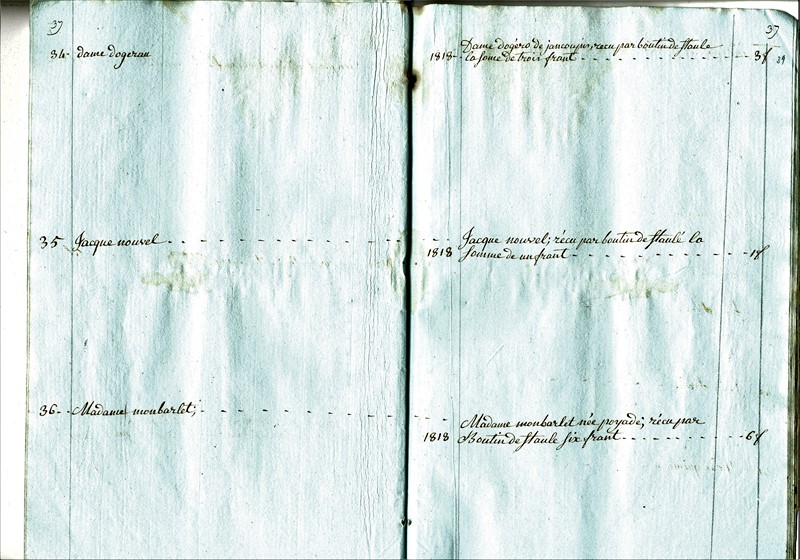 37
34- dame dogerau
35 Jacque nouvel
36- Madame monbarlet;
37
Dame dogero de jancoups, récu par boutin de staule
1818 la some de trois frant 3f
29
Jacque nouvel; récu par boutin de staulé la
1818 Somme de un frant 1f
Madame monbarlet née poyade; récu par
1818 Boutin de staule six frant 6f